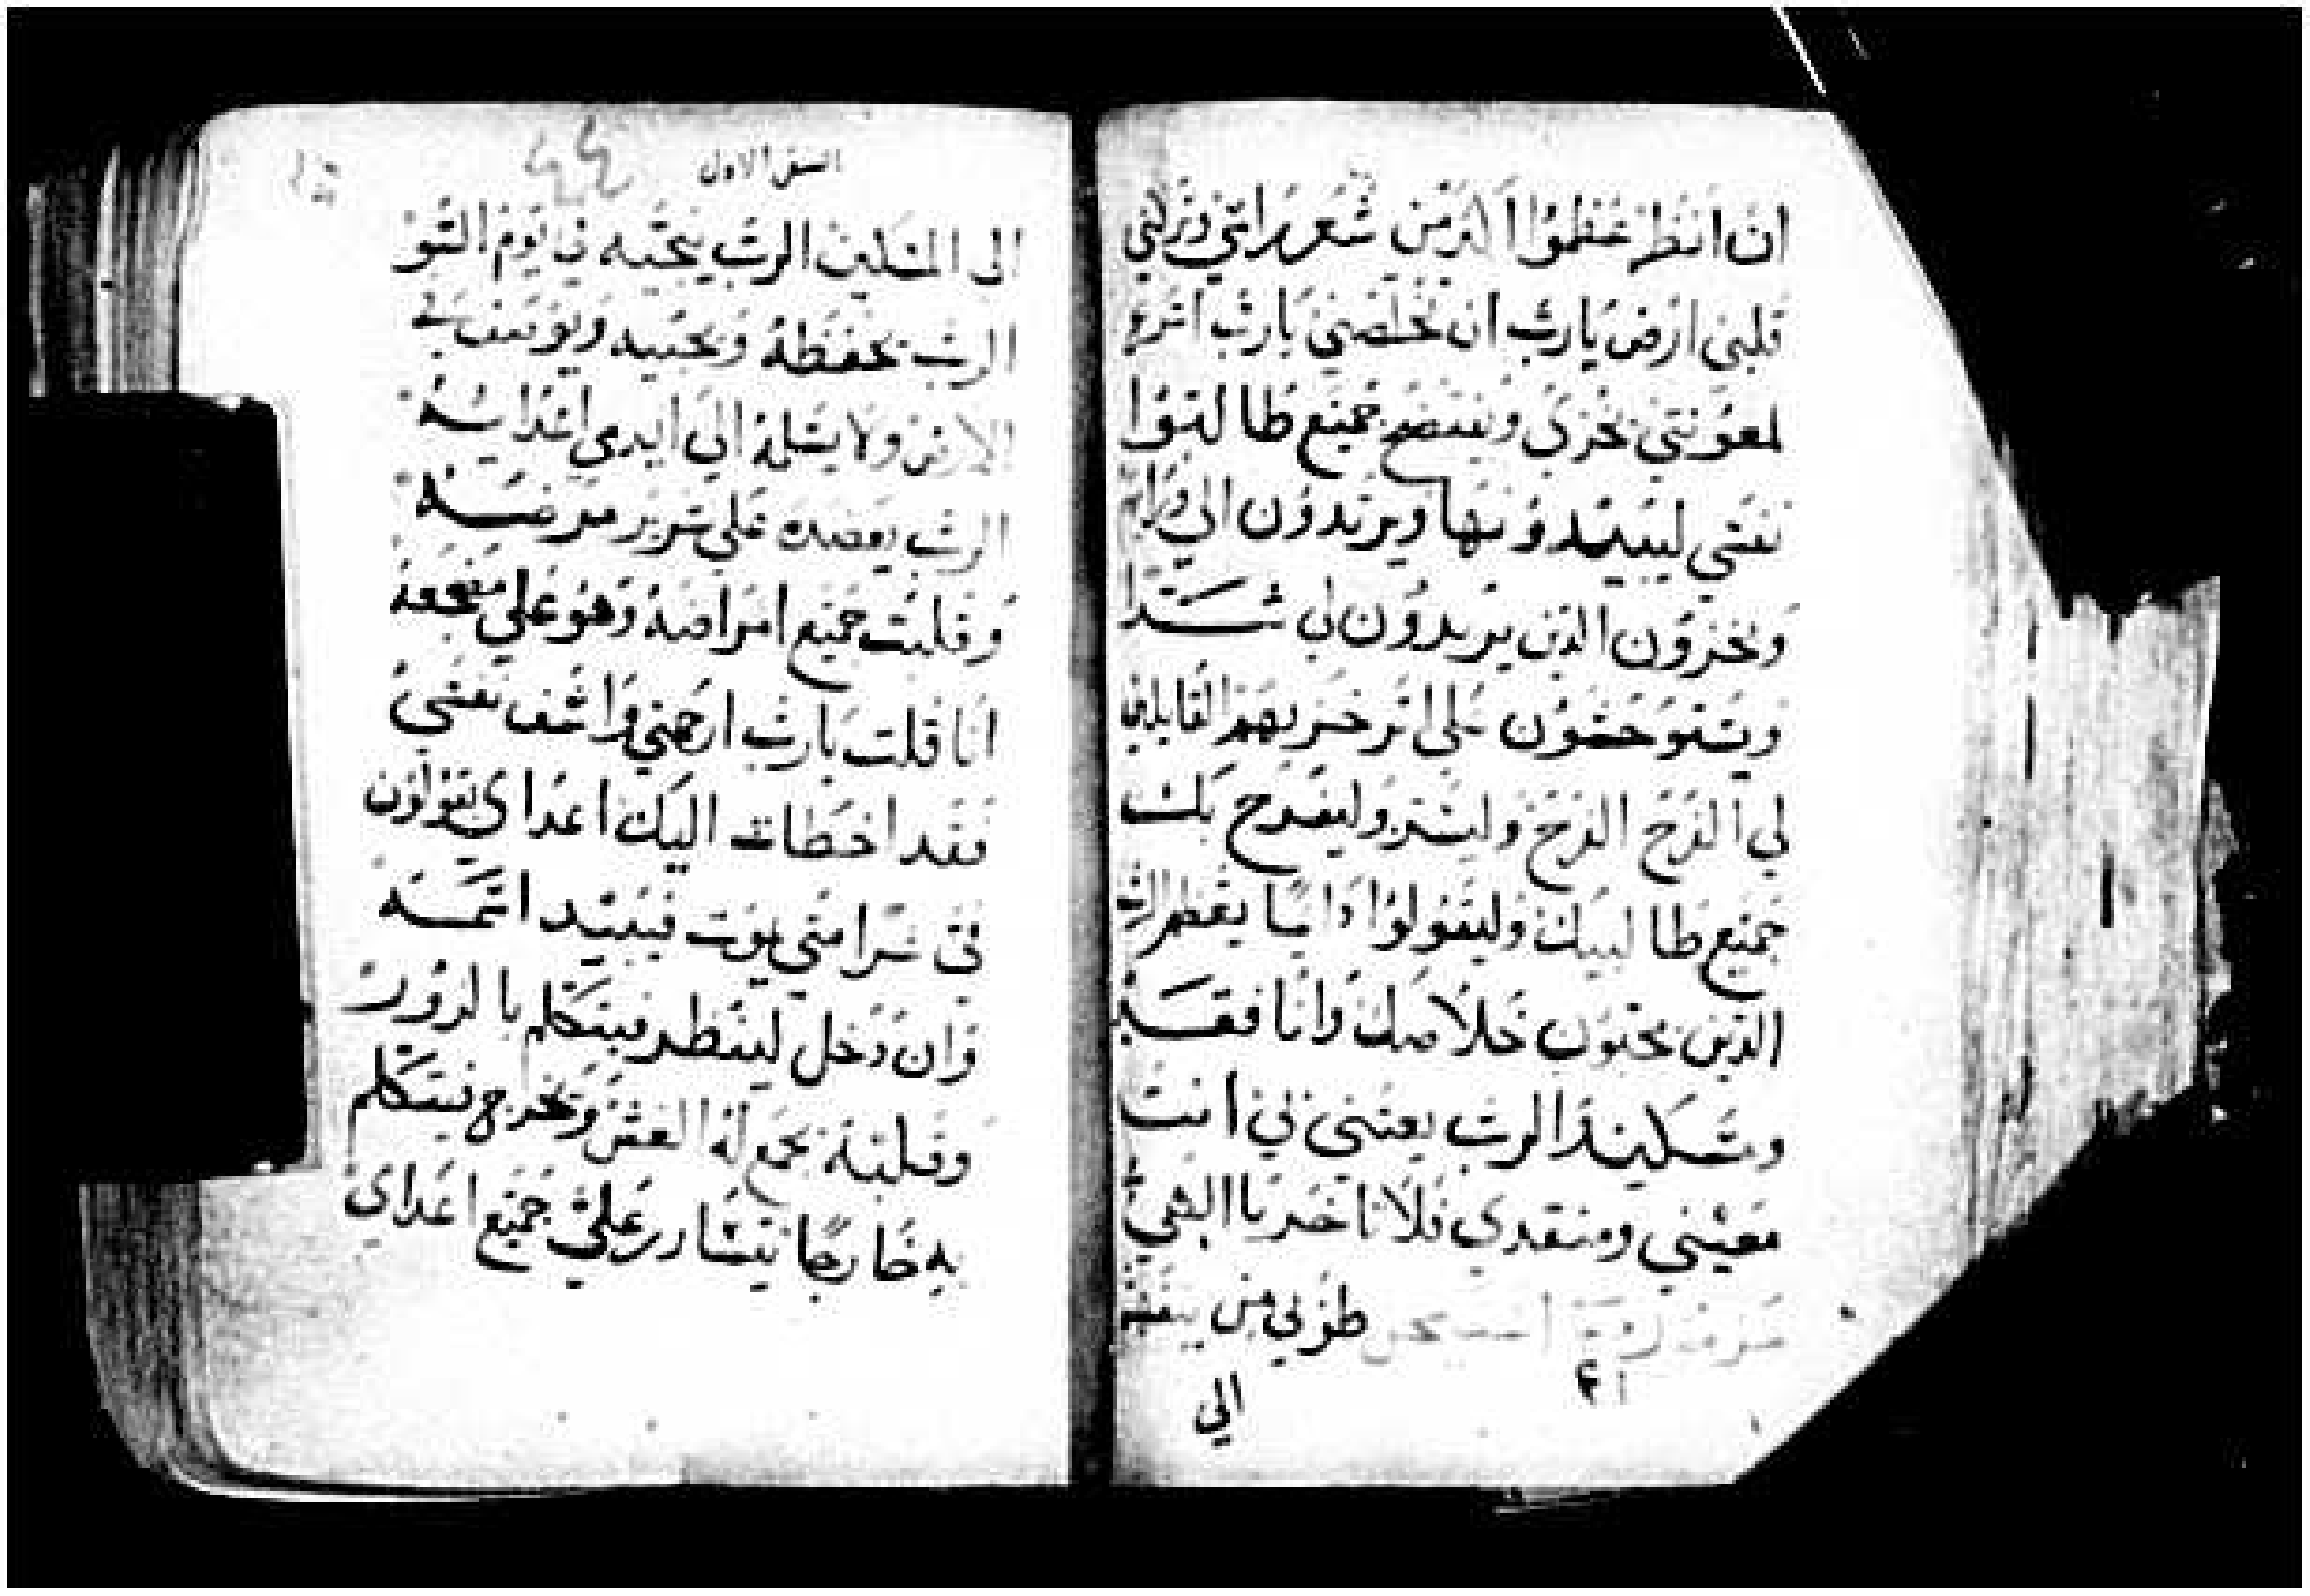 ان انظر عظموا اكثر من شعر راسي وتركني
قلبي ارض يارب ان تخلصني يارب اسرع
لمعونتي يخزي ويفتضح جميع طالبوا
نفسي ليبيدونها ويرتدون الي ورايهم
ويخزون الذين يريدون لي شرا
ويستوحشون علي اثر خزيهم القايلين
لي الفرح الفرح وليسر وليفرح بك
جميع طالبيك وليقولوا دايما يعظم الرب
الذين يحبون خلاصك وانا فقير
ومسكين الرب يعتني بي انت
معيني ومنقدي فلا تاخر يا الهي
طوبي من يتفهم
الي
السفر الاول
الى المسكين الرب ينجيه في يوم السو
الرب يحفظه ويحييه ويوسف في
الارض ولا يسلمه الي ايدي اعدايه
الرب يعضده علي سرير مرضه
وقلبت جميع امراضه وهو علي مضجعه
انا قلت يارب ارحمني واشف نفسي
فقد اخطات اليك اعداي يقولون
في شرا متي يموت فيبيد اسمه
وان دخل لينظر فيتكلم بالزور
وقلبه يجمع له الغش ويخرج فيتكلم
به خارجا يتشاور علي جميع اعداي